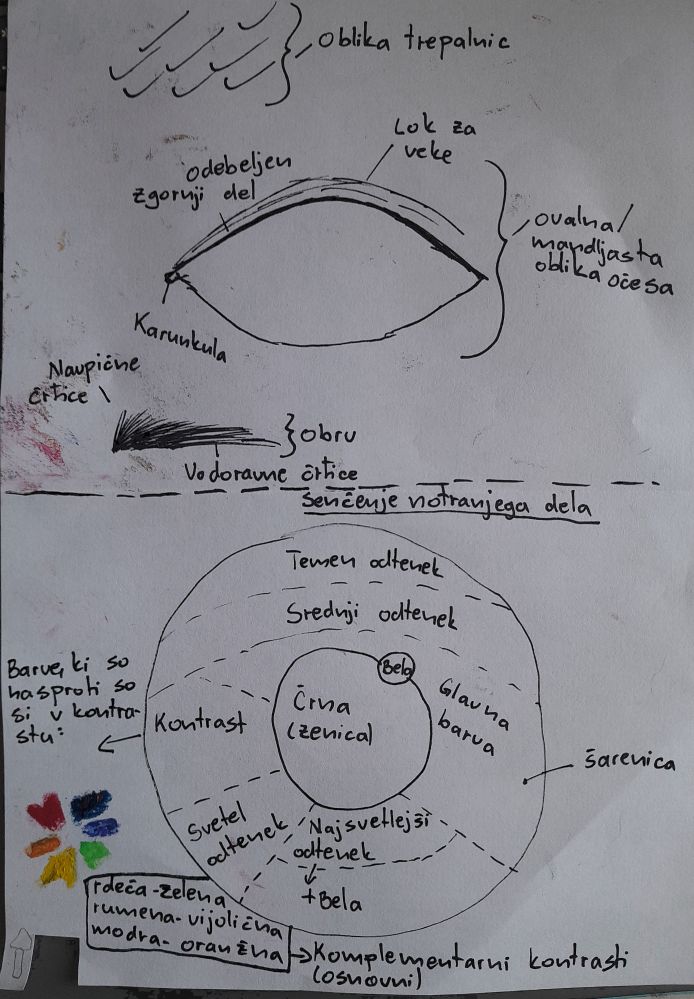 Oblika trepalnic
Lok za
veke
odebeljen
zgornji del
ovalna/
mandljasta
oblika očesa
Karunkula
Navpične
črtice
Obrv
Vodoravne črtice
Senčenje notranjega dela
Temen odtenek
Srednji odtenek
Bela
Glavna
barva
Črna
(zenica)
Kontrast
Barve, ki so
nasproti so
si v kontra-
stu:
šarenica
Svetel
odtenek
Najsvetlejši
odtenek
+Bela
rdeča-zelena
rumena-vijolična
modra-oranžna
Komplementarni kontrasti
(osnovni)